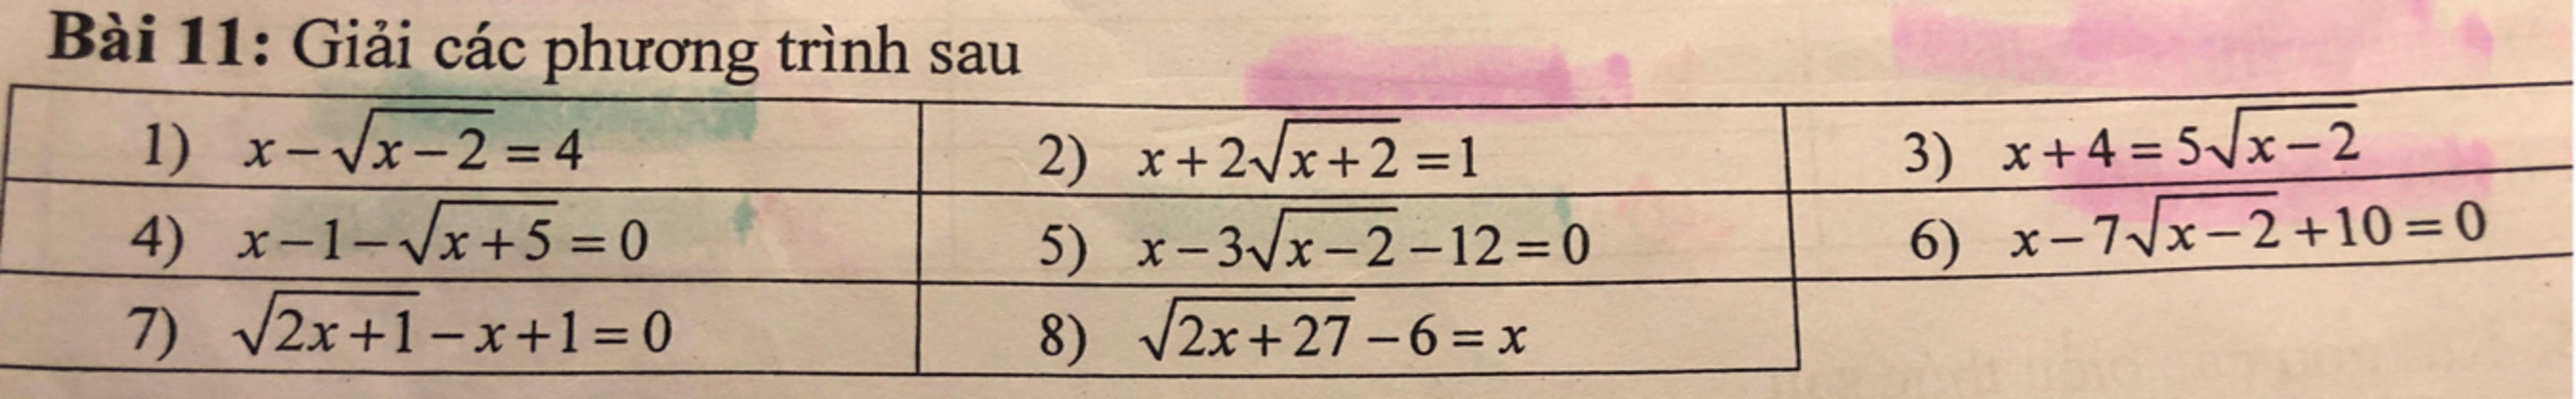 Bài 11: Giải các phương trình sau
1) x−√(x−2)=4 2) x+2√(x+2)=1 3) x+4=5√(x−2)
4) x−1−√(x+5)=0 5) x−3√(x−2)−12=0 6) x−7√(x−2)+10=0
7) √(2x+1)−x+1=0 8) √(2x+27)−6=x